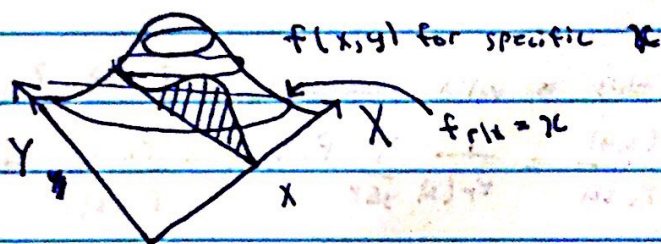 f(x,y) for specific x
X
Y
y
x